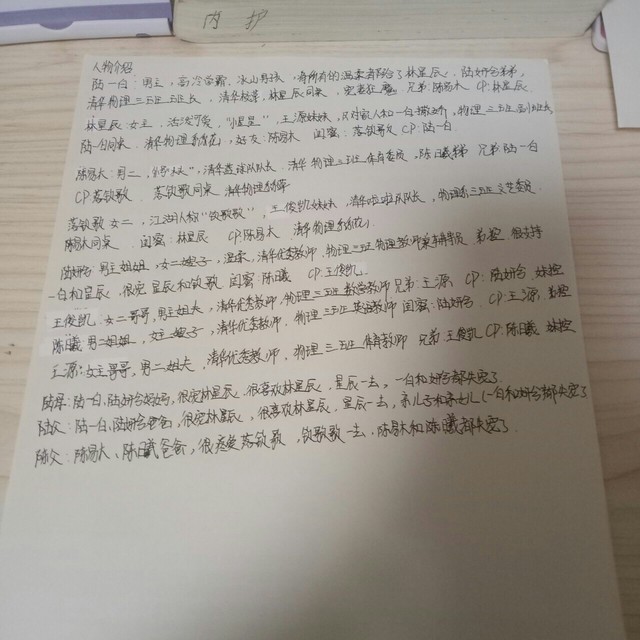 内 护
人物介绍
陆一白：男主，高冷学霸，冰山男孩，将所有的温柔都给了林星辰，陆妍合弟弟，
清华物理三班班长，清华校草，林星辰同桌，宠妻狂魔，兄弟：陈易木 CP：林星辰.
林星辰：女主，活泼可爱，"恒星"，王源妹妹，只对家人和一白撒娇，物理三班副班长，
陆一白同桌，清华物理系花，好友：陈易木 闺蜜：落钦歌 CP：陆一白.
陈易木：男二，清华篮球队队长，清华物理三班体育委员，陈曦弟 兄弟：陆一白
CP：落钦歌 落钦歌同桌 清华物理系草
落钦歌：女二，江湖人称"钦歌歌"，王俊凯妹妹，清华啦啦队队长，物理系三班文艺委员，
陈易木同桌，闺蜜：林星辰 CP：陈易木 清华物理系花
陆妍合：男主姐姐，女二嫂子，温柔，清华优秀教师，物理三班物理教师兼辅导员 弟控 很支持
一白和星辰，很宠星辰和钦歌 闺蜜：陈曦 CP：王俊凯.
王俊凯：女二哥哥，男主姐夫，清华优秀教师，物理三班数学教师 兄弟：王源 CP：陆妍合 妹控
陈曦：男二姐姐，女主嫂子，清华优秀教师，物理三班英语教师 闺蜜：陆妍合. CP：王源. 弟控
王源：女主哥哥，男二姐夫，清华优秀教师，物理三班体育教师 兄弟 王俊凯 CP：陈曦 妹控
陆母：陆一白，陆妍合妈妈，很宠林星辰，很喜欢林星辰，星辰一去，一白和妍合都失宠了
陆父：陆一白，陆妍合爸爸，很宠林星辰，很喜欢林星辰，星辰一去，亲儿子和亲女儿（一白和妍合都失宠了
陈父：陈易木、陈曦爸爸，很疼爱落钦歌，钦歌歌一去，陈易木和陈曦都失宠了.